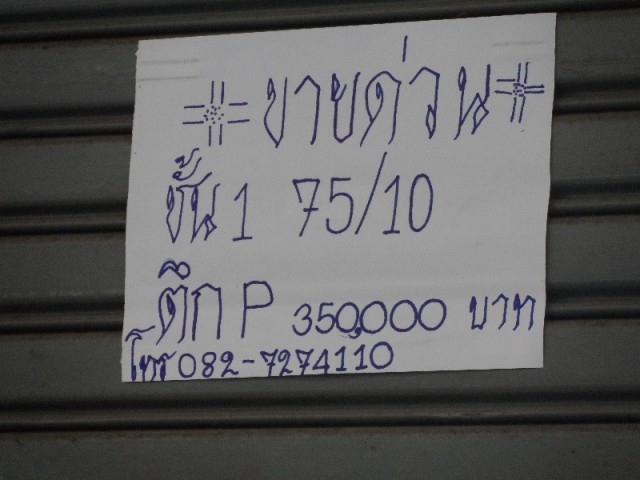 ขายด่วน
ชั้น 1 75/10
ตึก P 350,000 บาท
โทร 082-7274110